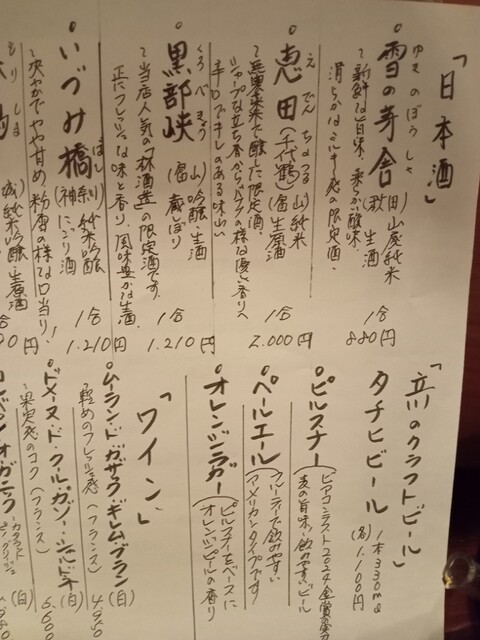 「日本酒」
ゆきのぼうしゃ
雪の茅舎
(秋田)山廃純米
生酒
〜新鮮な旨味、柔らか酸味、
滑らかなミルキー感の限定酒〜
1合
880円
えでん ちよづる
恵田(千代鶴)
(富山)純米
生原酒
〜無農薬米で醸した限定酒、
辛口でキレのある味わい
1合
2.000円
くろべきょう
黒部峡
(富山)吟醸・生酒
蔵しぼり
〜当店人気の「林酒造」の限定酒です。
正にフレッシュな味と香り、風味豊かな生酒
1合
1.210円
いづみ橋
ばし
(神奈川)純米吟醸
にごり酒
〜爽やかでやや甘め。粉雪の様な口当り!
1合
1.210円
もりしま
純米吟醸・生原酒
「立川のクラフトビール」
タチヒビール
1本330ml
(各)1.100円
ピルスナー
ビアコンテスト2024金賞受賞
麦の旨味、飲みやすいビール
ペールエール
フルーティで飲みやすい
アメリカンタイプです
オレンジラガー
ピルスナーをベースに
オレンジピールの香り
「ワイン」
ムーラン・ド・ガサック・ギレム・ブラン
(白)
〜軽めのフレッシュ感(フランス)
ドメーヌ・ド・クール・ガゾー・シャルドネ
(白)
〜果実感のコク(フランス)